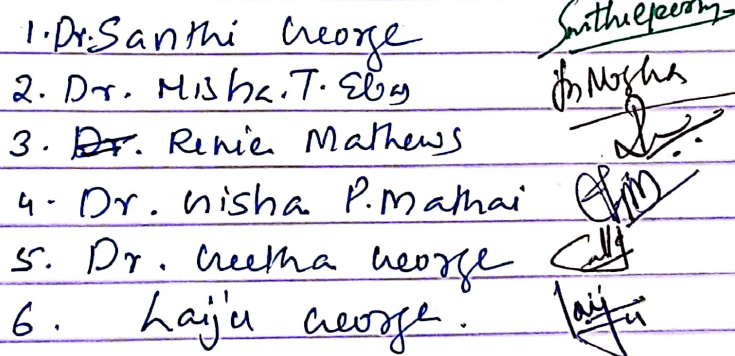 1. Dr. Santhi George
2. Dr. Misha. T. Eby
3. Dr. Renie Mathews
4. Dr. Nisha P. Mathai
5. Dr. Geetha George
6. Laiju George. Laiju